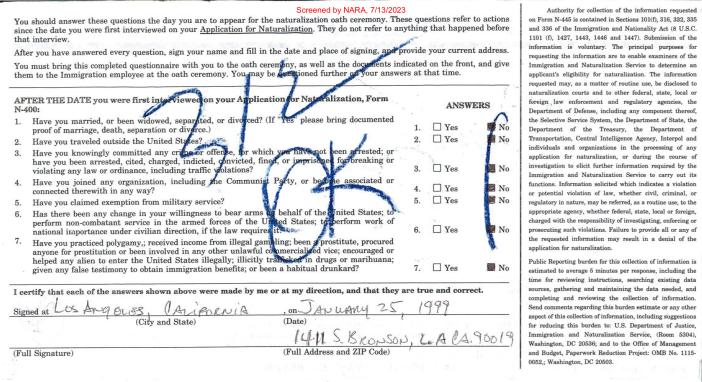 Screened by NARA, 7/13/2023
You should answer these questions the day you are to appear for the naturalization oath ceremony. These questions refer to actions
since the date you were first interviewed on your Application for Naturalization. They do not refer to anything that happened before
that interview.
After you have answered every question, sign your name and fill in the date and place of signing, and provide your current address.
You must bring this completed questionnaire with you to the oath ceremony, as well as the documents indicated on the front, and give
them to the Immigration employee at the oath ceremony. You may be questioned further on your answers at that time.
212
OK
AFTER THE DATE you were first interviewed on your Application for Naturalization, Form
N-400:
ANSWERS
1. Have you married, or been widowed, separated, or divorced? (If "Yes" please bring documented
proof of marriage, death, separation or divorce.)
1. Yes No
2. Have you traveled outside the United States?
2. Yes No
3. Have you knowingly committed any crime or offense, for which you have not been arrested; or
have you been arrested, cited, charged, indicted, convicted, fined, or imprisoned for breaking or
violating any law or ordinance, including traffic violations?
3. Yes No
4. Have you joined any organization, including the Communist Party, or become associated or
connected therewith in any way?
4. Yes No
5. Have you claimed exemption from military service?
5. Yes No
6. Has there been any change in your willingness to bear arms on behalf of the United States; to
perform non-combatant service in the armed forces of the United States; to perform work of
national importance under civilian direction, if the law requires it?
6. Yes No
7. Have you practiced polygamy,; received income from illegal gambling; been a prostitute, procured
anyone for prostitution or been involved in any other unlawful commercialized vice; encouraged or
helped any alien to enter the United States illegally; illicitly trafficked in drugs or marihuana;
given any false testimony to obtain immigration benefits; or been a habitual drunkard?
7. Yes No
I certify that each of the answers shown above were made by me or at my direction, and that they are true and correct.
Signed at LOS ANGELES, CALIFORNIA , on JANUARY 25, 1999
(City and State) (Date)
1411 S. BRONSON, L.A CA. 90019
(Full Signature) (Full Address and ZIP Code)
Authority for collection of the information requested
on Form N-445 is contained in Sections 101(f), 316, 332, 335
and 336 of the Immigration and Nationality Act (8 U.S.C.
1101 (f), 1427, 1443, 1446 and 1447). Submission of the
information is voluntary. The principal purposes for
requesting the information are to enable examiners of the
Immigration and Naturalization Service to determine an
applicant's eligibility for naturalization. The information
requested may, as a matter of routine use, be disclosed to
naturalization courts and to other federal, state, local or
foreign law enforcement and regulatory agencies, the
Department of Defense, including any component thereof,
the Selective Service System, the Department of State, the
Department of the Treasury, the Department of
Transportation, Central Intelligence Agency, Interpol and
individuals and organizations in the processing of any
application for naturalization, or during the course of
investigation to elicit further information required by the
Immigration and Naturalization Service to carry out its
functions. Information solicited which indicates a violation
or potential violation of law, whether civil, criminal, or
regulatory in nature, may be referred, as a routine use, to the
appropriate agency, whether federal, state, local or foreign,
charged with the responsibility of investigating, enforcing or
prosecuting such violations. Failure to provide all or any of
the requested information may result in a denial of the
application for naturalization.
Public Reporting burden for this collection of information is
estimated to average 5 minutes per response, including the
time for reviewing instructions, searching existing data
sources, gathering and maintaining the data needed, and
completing and reviewing the collection of information.
Send comments regarding this burden estimate or any other
aspect of this collection of information, including suggestions
for reducing this burden to: U.S. Department of Justice,
Immigration and Naturalization Service, (Room 5304),
Washington, DC 20536; and to the Office of Management
and Budget, Paperwork Reduction Project: OMB No. 1115-
0052,; Washington, DC 20503.